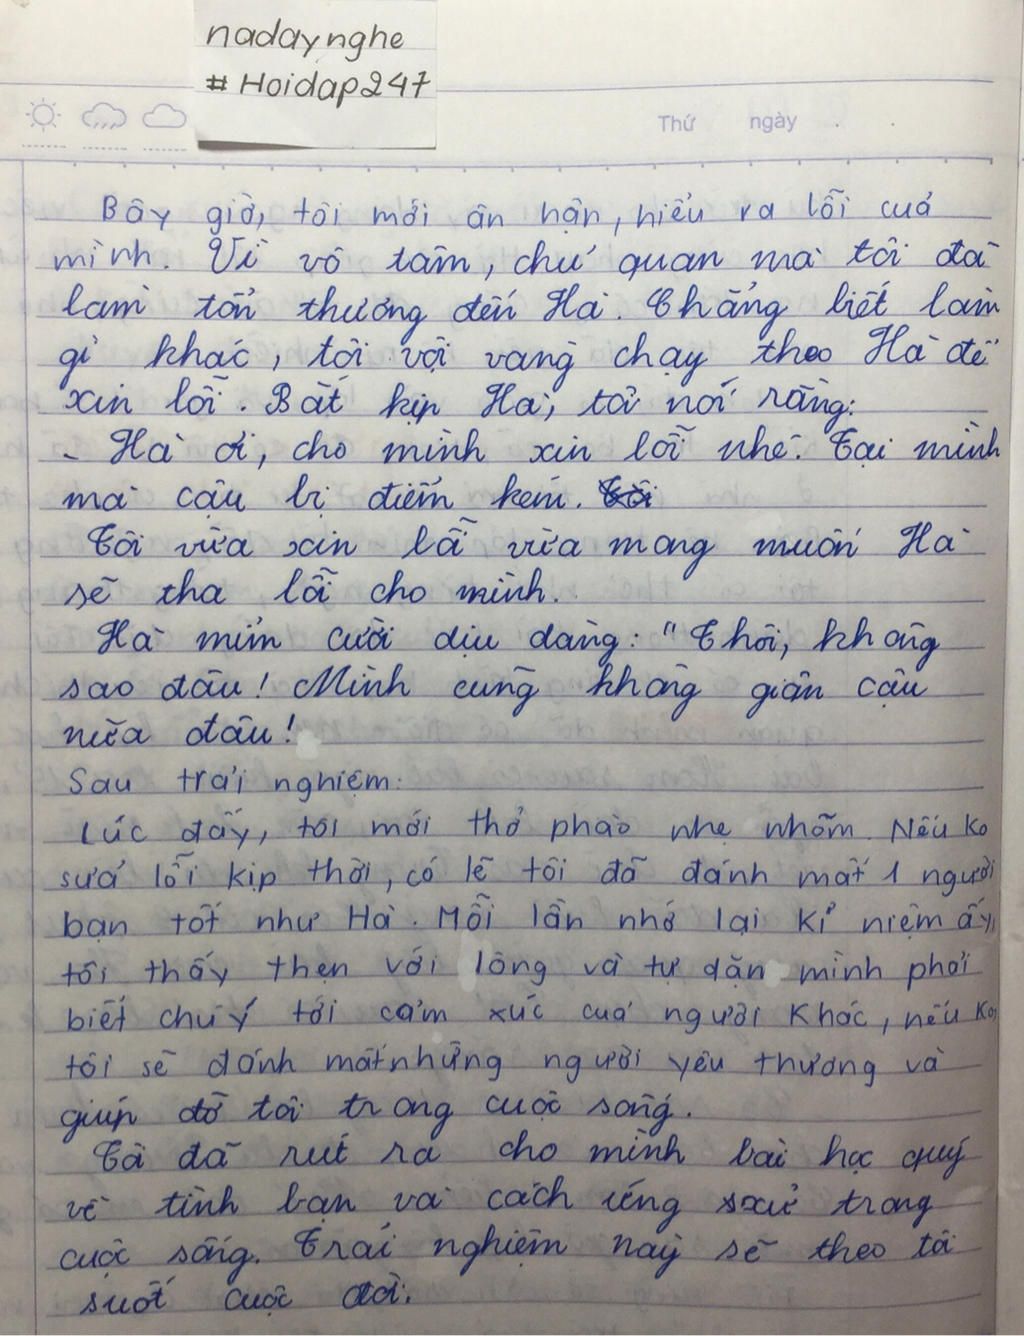 nadaynghe
#Hoidap247
Thứ ngày
Bây giờ, tôi mới ân hận, hiểu ra lỗi của
mình. Vì vô tâm, chủ quan mà tôi đã
làm tổn thương đến Hà. Chẳng biết làm
gì khác, tôi vội vàng chạy theo Hà để
xin lỗi. Bắt kịp Hà, tôi nói rằng:
- Hà ơi, cho mình xin lỗi nhé. Tại mình
mà cậu bị điểm kém. Tôi
Tôi vừa xin lỗi vừa mong muốn Hà
sẽ tha lỗi cho mình.
Hà mỉm cười dịu dàng: "Thôi, không
sao đâu! Mình cũng không giận cậu
nữa đâu!
Sau trải nghiệm:
Lúc đấy, tôi mới thở phào nhẹ nhõm. Nếu ko
sửa lỗi kịp thời, có lẽ tôi đã đánh mất 1 người
bạn tốt như Hà. Mỗi lần nhớ lại kỉ niệm ấy,
tôi thấy thẹn với lòng và tự dặn mình phải
biết chú ý tới cảm xúc của người khác, nếu ko,
tôi sẽ đánh mất những người yêu thương và
giúp đỡ tôi trong cuộc sống.
Tôi đã rút ra cho mình bài học quý
về tình bạn và cách ứng xử trong
cuộc sống. Trải nghiệm này sẽ theo tôi
suốt cuộc đời.